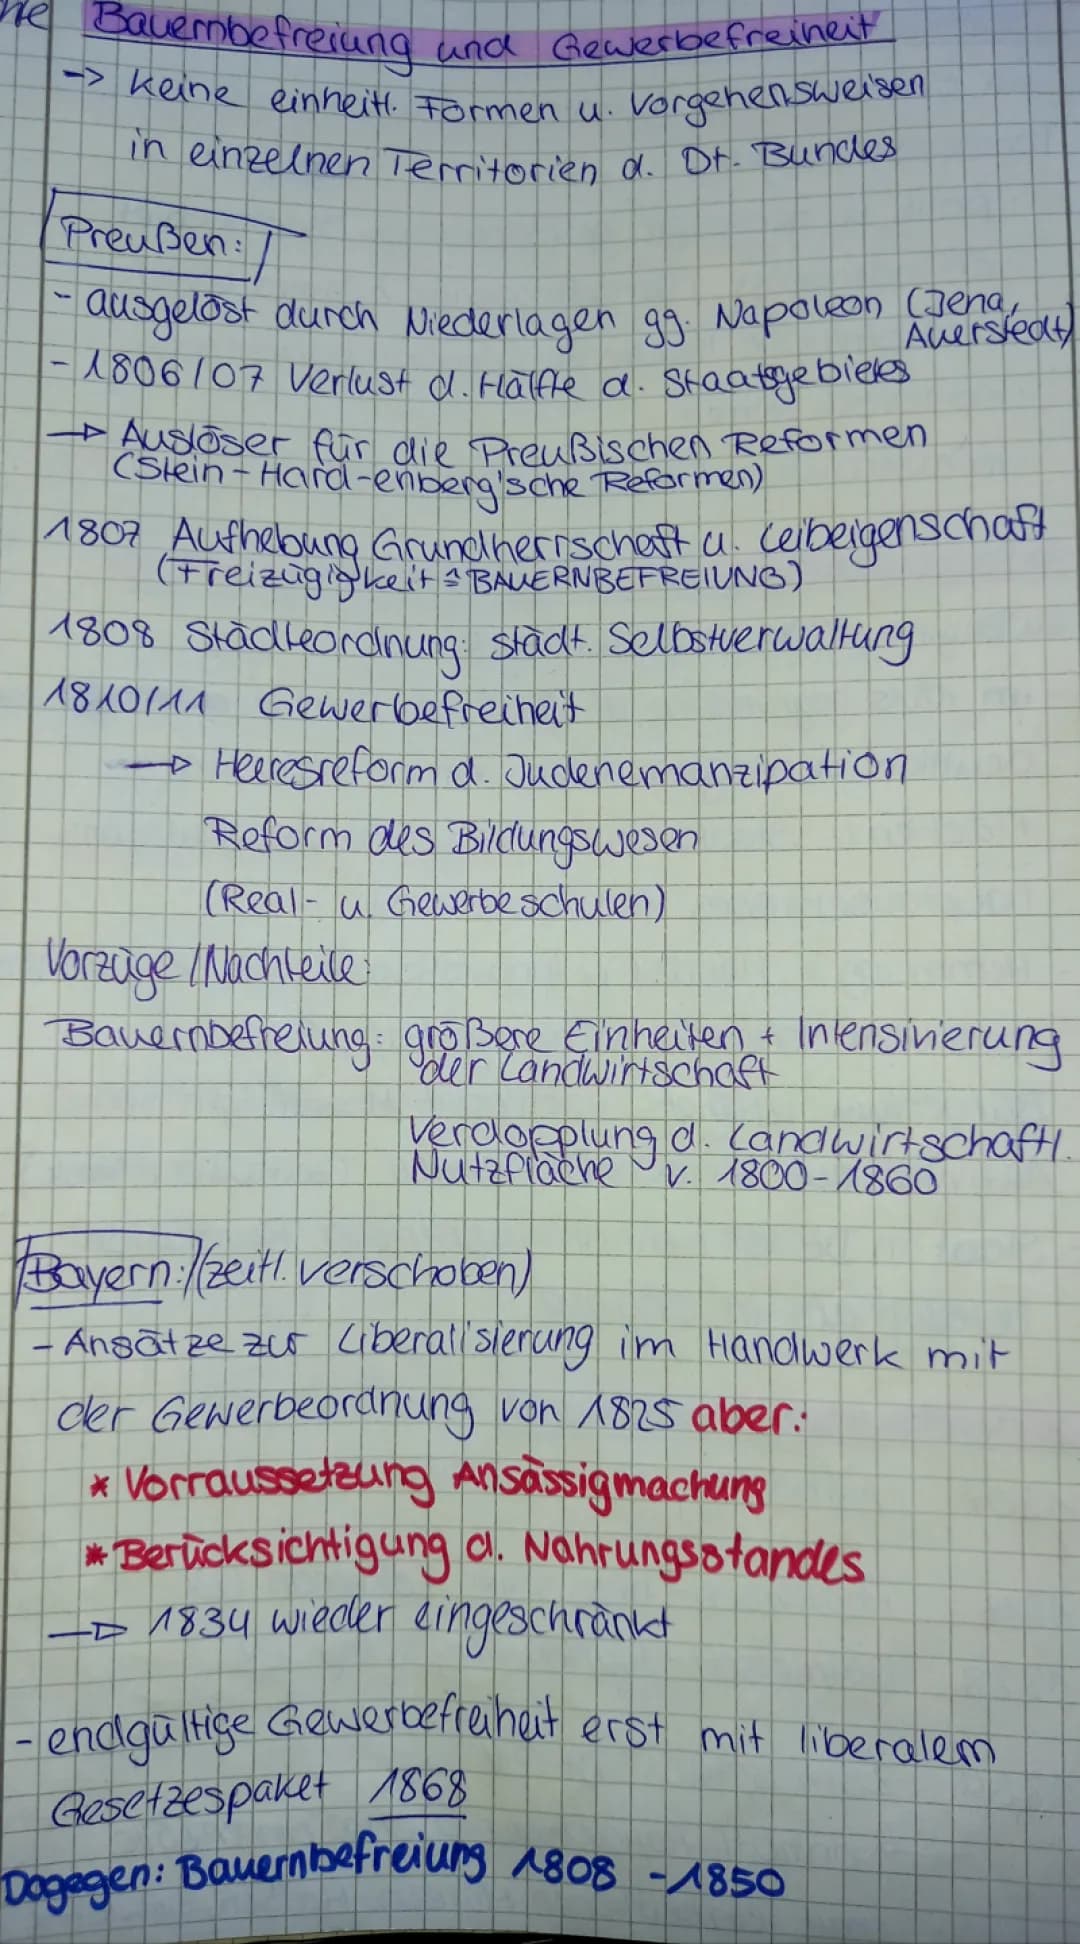 Bauernbefreiung und Gewerbefreiheit
-> keine einheitl. Formen u. Vorgehensweisen
in einzelnen Territorien d. Dt. Bundes
Preußen:
- ausgelöst durch Niederlagen gg. Napoleon (Jena,
Auerstedt)
- 1806/07 Verlust d. Hälfte d. Staatsgebietes
-> Auslöser für die Preußischen Reformen
(Stein-Hard-enberg'sche Reformen)
1807 Aufhebung Grundherrschaft u. Leibeigenschaft
(Freizügigkeit ≙ BAUERNBEFREIUNG)
1808 Städteordnung: städt. Selbstverwaltung
1810/11 Gewerbefreiheit
-> Heeresreform d. Judenemanzipation
Reform des Bildungswesen
(Real- u. Gewerbeschulen)
Vorzüge/Nachteile:
Bauernbefreiung: größere Einheiten + Intensivierung
der Landwirtschaft
Verdopplung d. Landwirtschaftl.
Nutzfläche v. 1800-1860
Bayern: (zeitl. verschoben)
- Ansätze zur Liberalisierung im Handwerk mit
der Gewerbeordnung von 1825 aber:
* Vorraussetzung Ansässigmachung
* Berücksichtigung d. Nahrungsstandes
-> 1834 wieder eingeschränkt
- endgültige Gewerbefreiheit erst mit liberalem
Gesetzespaket 1868
Dagegen: Bauernbefreiung 1808 - 1850